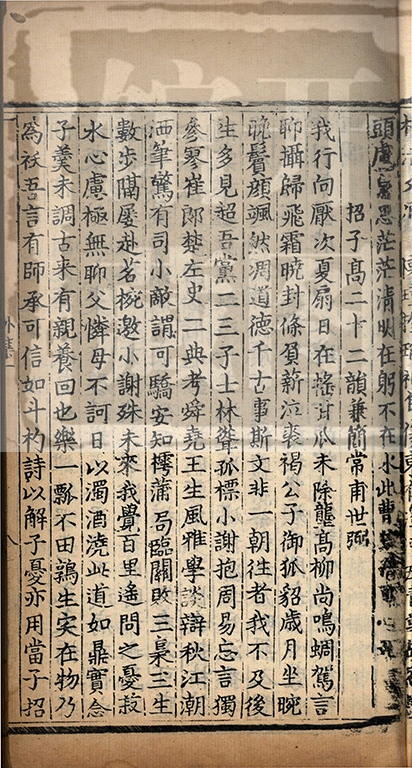 思茫茫清明在躬不在水此曹
招子髙二十二韻兼簡常甫世弼
我行向厭次夏扇日在搖甘瓜未除壟髙柳尚鳴蜩駕言
聊攝歸飛霜曉封條負薪泣裘褐公子御狐貂歲月坐晼
晚鬢顔颯然凋道徳千古事斯文非一朝徃者我不及後
生多見超吾黨二三子士林聳孤標小謝抱周易忘言獨
參寥崔郎楚左史二典考舜堯王生風雅學談辯秋江潮
洒筆驚有司小敵謂可驕安知樗蒲局臨關敗三梟三生
數步隔屢赴茗椀邀小謝殊未來我覺百里遥問之憂菽
水心慮極無聊父憐母不訶日以濁酒澆此道如鼎實念
子羮未調古来有親養回也樂一瓢不田鶉生実在物乃
為祅吾言有師承可信如斗杓詩以解子憂亦用當子招
八